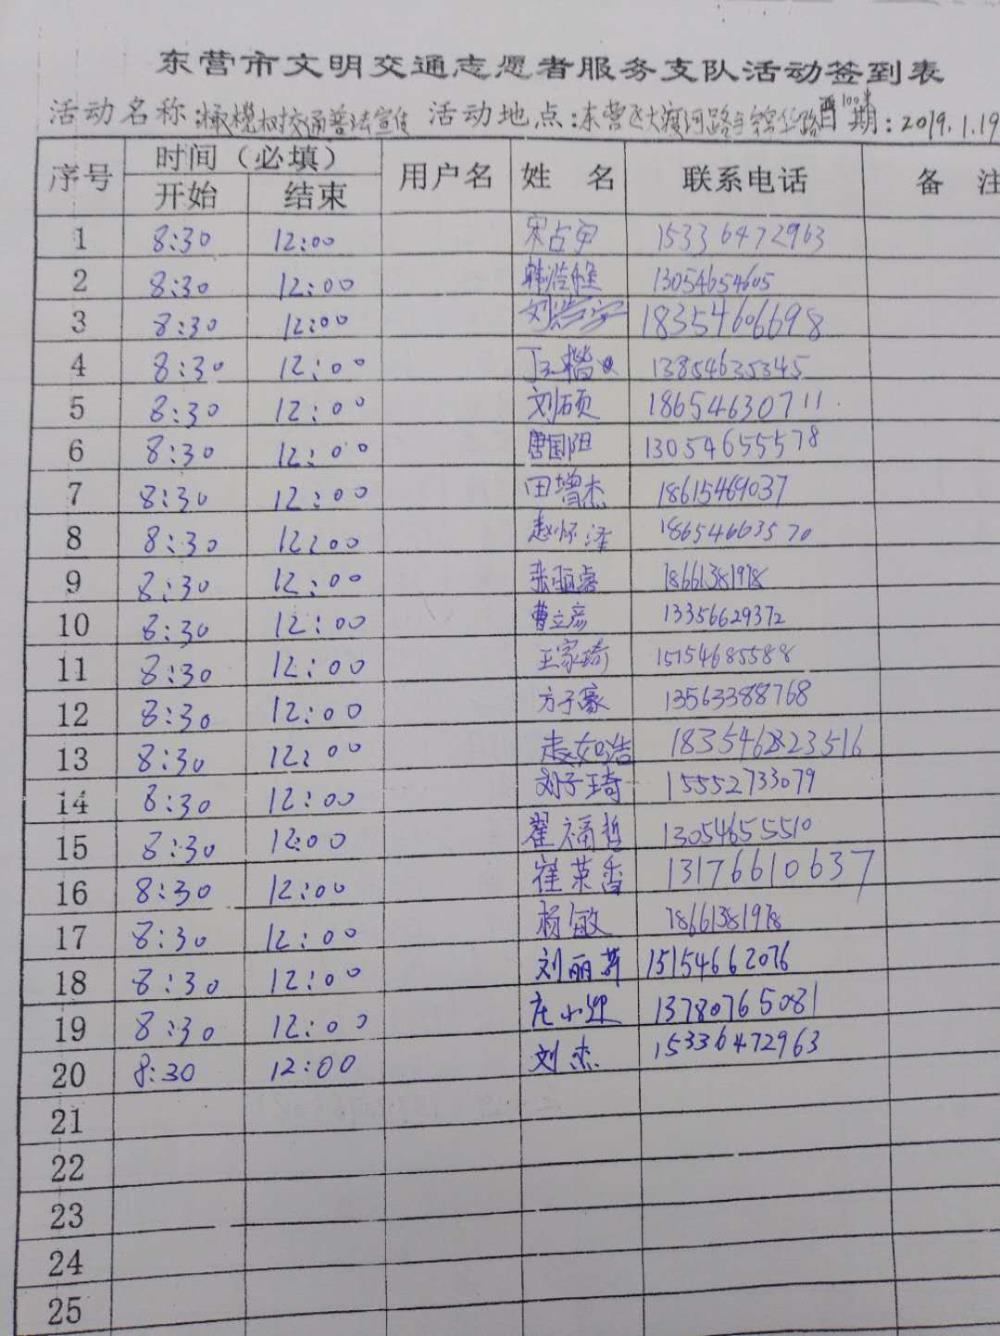 东营市文明交通志愿者服务支队活动签到表
活动名称:橄榄树交通普法宣传 活动地点:东营区大渡河路与 路西100米 日期:2019.1.19
序号 时间(必填) 用户名 姓 名 联系电话 备 注
开始 结束
1 8:30 12:00 宋占宇 15336472963
2 8:30 12:00 韩浩 13054654605
3 8:30 12:00 刘浩宇 18354606698
4 8:30 12:00 丁玉楷 13854635345
5 8:30 12:00 刘硕 18654630711
6 8:30 12:00 唐国阳 13054655578
7 8:30 12:00 田增杰 18615469037
8 8:30 12:00 赵怀泽 18654663570
9 8:30 12:00 张 18661381978
10 8:30 12:00 曹立彦 13356629372
11 8:30 12:00 王家琦 15154685588
12 8:30 12:00 方子豪 13563388768
13 8:30 12:00 183546823516
14 8:30 12:00 刘子琦 15552733079
15 8:30 12:00 翟福哲 13054655510
16 8:30 12:00 崔荣香 13176610637
17 8:30 12:00 杨敏 18661381978
18 8:30 12:00 刘丽萍 15154662076
19 8:30 12:00 庄小迎 13780765081
20 8:30 12:00 刘杰 15336472963
21
22
23
24
25